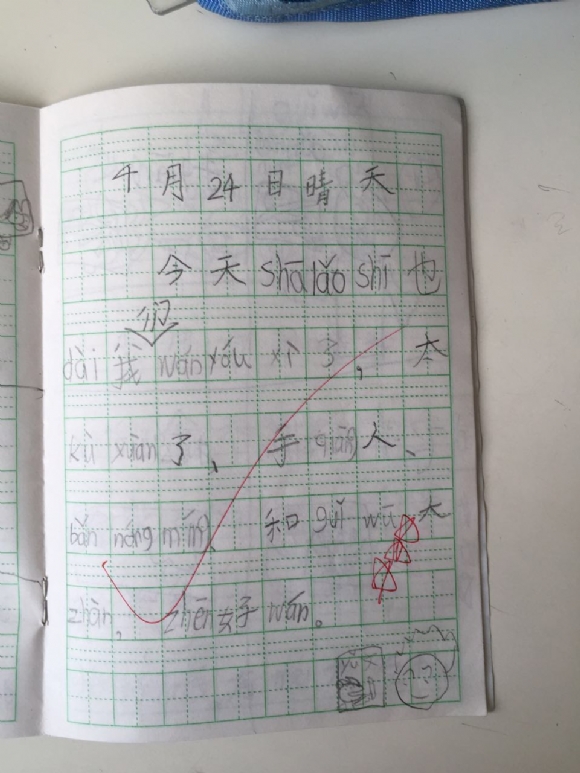 4月24日晴天
今天shā lǎo shī也
们
dài我wán yóu xì了，太
kù xuàn了、手qiāng人、
bàn nóng mín、和guǐ wū大
zhàn，zhēn好wán。